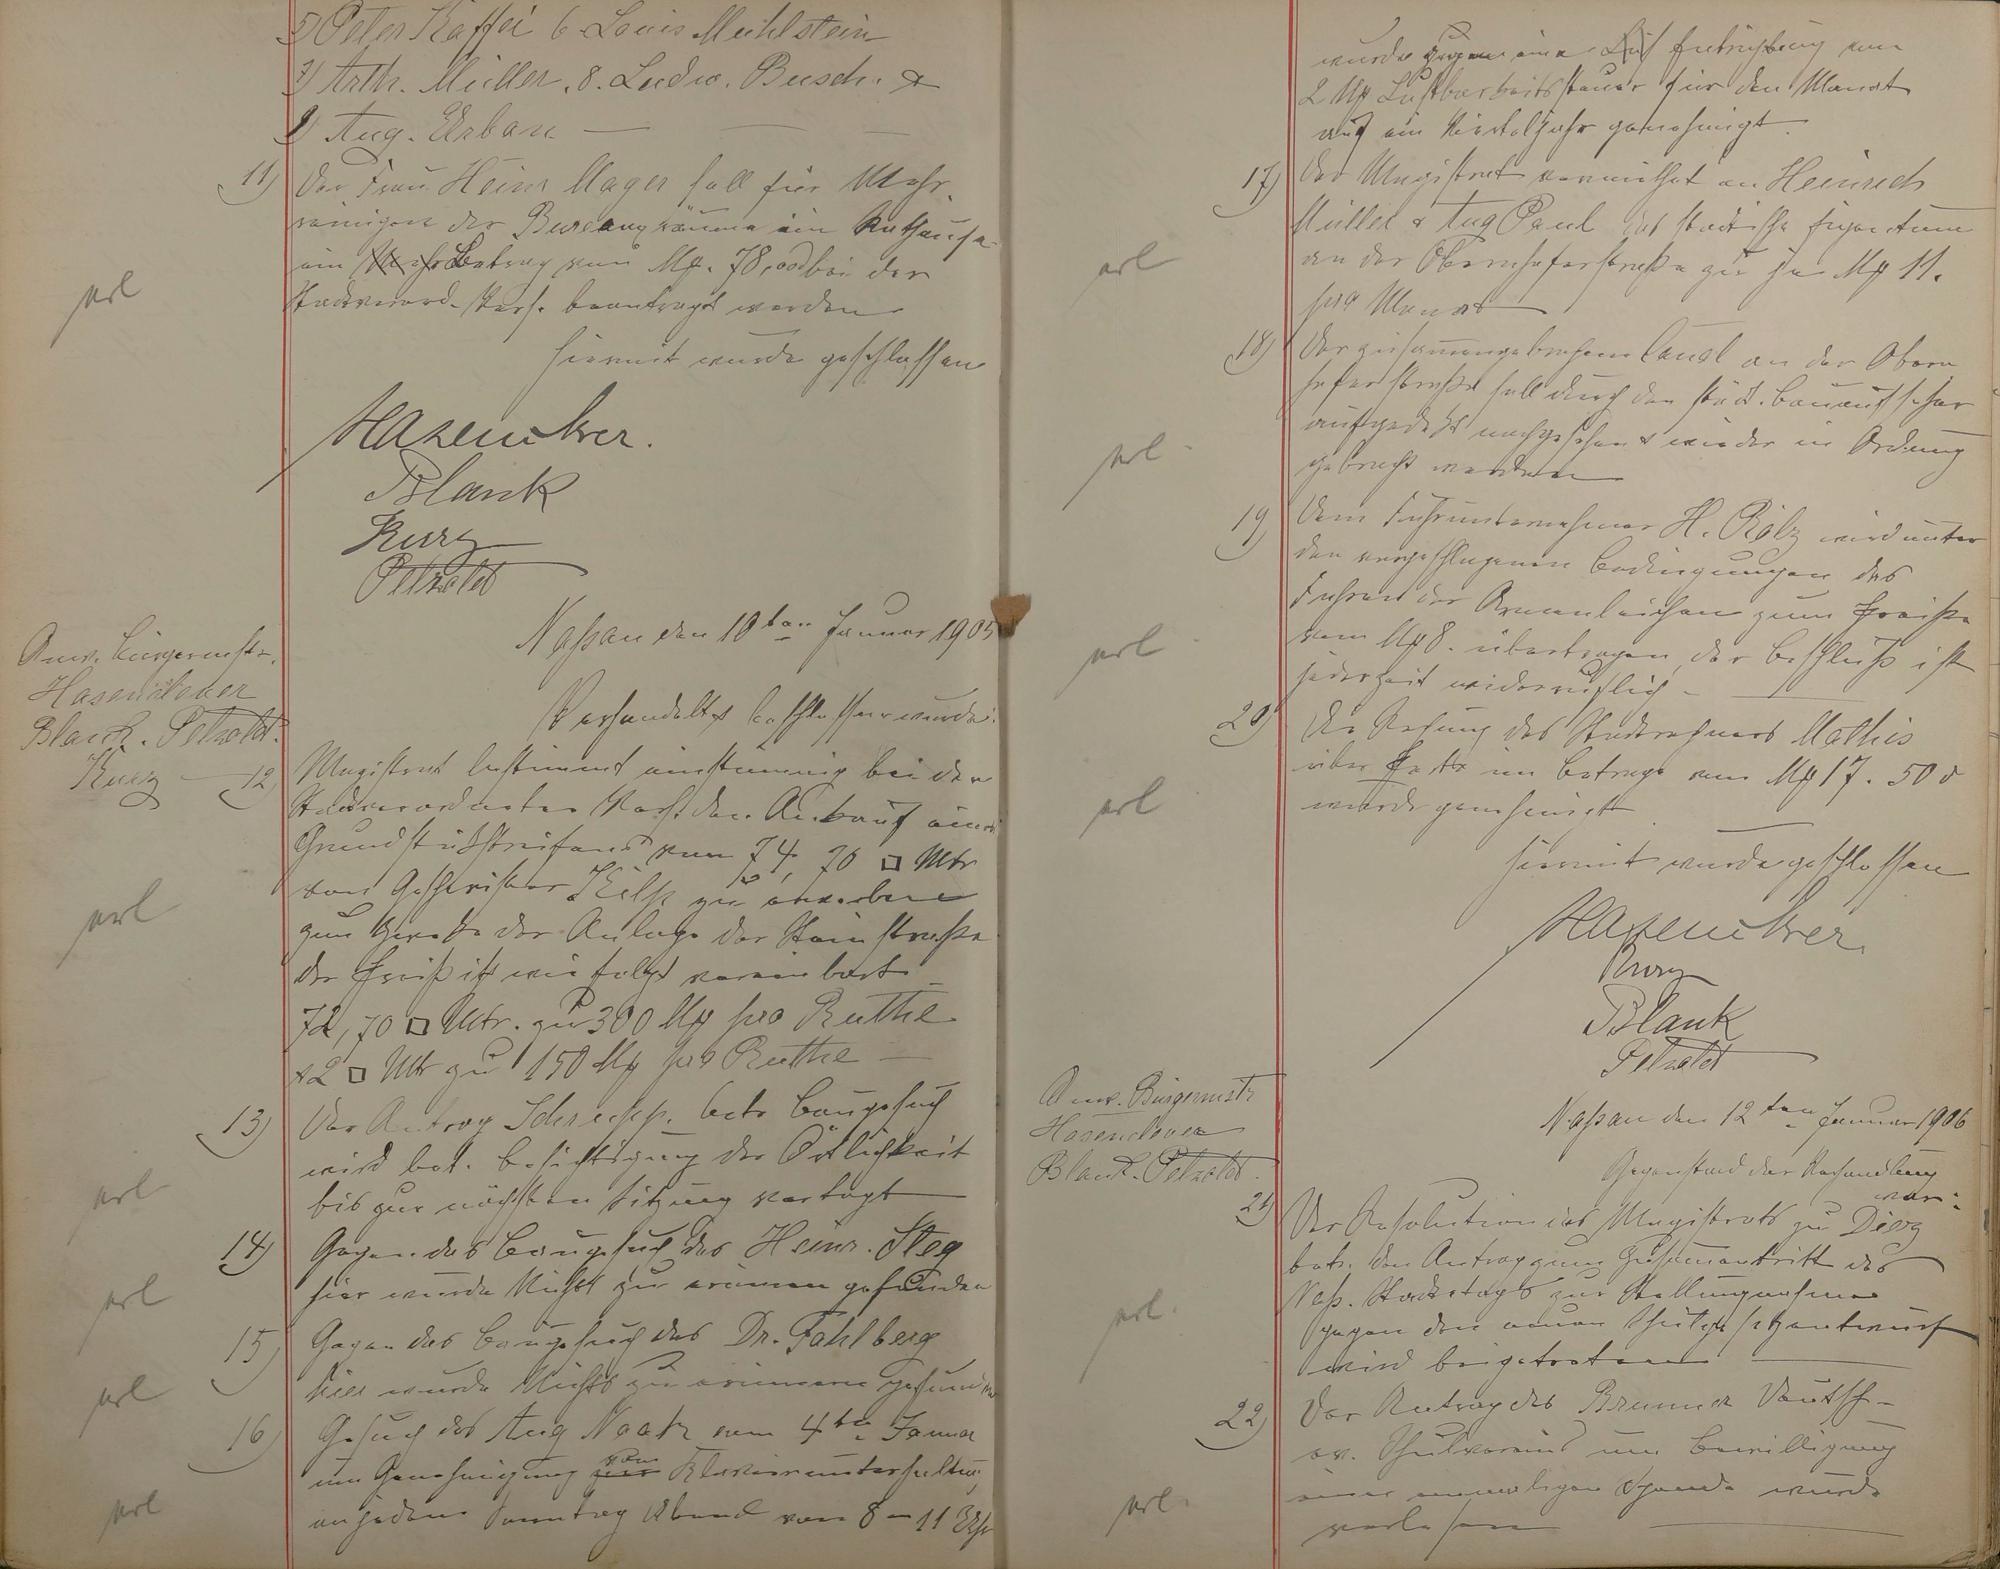 5) Peter Kaffei 6. Louis Muhlstein
7) Arth. Müller. 8. Ludw. Busch. &
9) Aug. Urban —
11) Der Frau Heinr Mager soll für Mehr
reinigen der Bureauxräume im Rathause
ein Betrag von Mk. 78,00 bei der
Stadtverord. Vers. beantragt werden
hiermit wurde geschlossen
Hasenclever.
Blank
Kurz
Petzoldt
Naßau den 10ten Januar 1905
Anw. Bürgermstr.
Hasenclever
Blank. Petzoldt.
Kurz
Verhandelt & beschlossen wurde:
12) Magistrat bestimmt einstimmig bei der
Stadtverordneten Vers. den Ankauf eines
Grundstückstreifens von 74,70 □ Mtr
von Geschwister zu erwerben
zum Zwecke der Anlage der Steinstraße
der Preiß ist wie folgt vereinbart
72,70 □ Mtr. zu 300 Mk pro Ruthe
& 2 □ Mtr zu 150 Mk pro Ruthe —
13) Der Antrag Schrupp. betr Baugesuch
wird bet. Besichtigung der Örtlichkeit
bis zur nächsten Sitzung vertagt
14) Gegen das Baugesuch des Heinr. Steg
hier wurde Nichts zu erinnern gefunden
15) Gegen das Baugesuch des Dr. Fahlberg
hier wurde Nichts zu erinnern gefunden
16) Gesuch des Aug Noak vom 4ten Januar
um Genehmigung von Klavierunterhaltung
an jedem Sonntag Abend von 8 – 11 Uhr
erl
erl
erl
erl
erl
erl
wurde gegen eine Entrichtung von
2 Mk Lustbarkeitssteuer für den Monat
auf ein Vierteljahr genehmigt.
17) Der Magistrat vermiethet an Heinrich
Müller & Aug Paul das städtische Eigentum
an der Obernhoferstraße zu je Mk 11.
pro Monat
18) Der zusammengebrochene Canal an der Obern
hoferstraße soll durch den städt. Bauaufseher
aufgedeckt nachgesehen & wieder in Ordnung
gebracht werden
19) Dem Fuhrunternehmer H. Rölz wird unter
den vorgeschlagenen Bedingungen das
Fahren der Armenleichen zum Preiße
von Mk 8. übertragen, der Beschluß ist
jederzeit widerruflich —
20) Die Rechnung des Stadtrechners Mathis
über Porto im Betrage von Mk 17. 50 δ
wurde genehmigt.
hiermit wurde geschlossen
Hasenclever.
Kurz
Blank
Petzoldt
Naßau den 12ten Januar 1906
Anw. Bürgermstr
Hasenclever
Blank. Petzoldt.
Gegenstand der Verhandlung
war:
21) Der Resolution des Magistrats zu Diez
betr. den Antrag zum Zusammentritt des
Naß. Städtetags zur Stellungnahme
gegen den neuen Schulgesetzentwurf
wird beigetreten
22) Der Antrag des Brünner Deutsch-
ev. Schulvereins um Bewilligung
einer einmaligen Spende wurde
verlesen
erl
erl
erl
erl
erl.
erl.